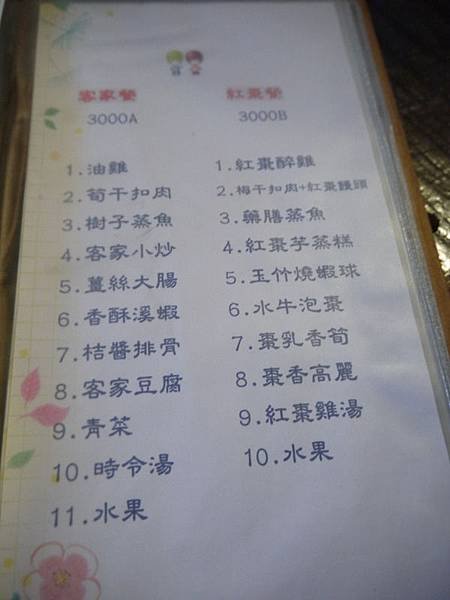 客家餐
3000A
1.油雞
2.筍干扣肉
3.樹子蒸魚
4.客家小炒
5.薑絲大腸
6.香酥溪蝦
7.桔醬排骨
8.客家豆腐
9.青菜
10.時令湯
11.水果
紅棗餐
3000B
1.紅棗醉雞
2.梅干扣肉+紅棗饅頭
3.藥膳蒸魚
4.紅棗芋蒸糕
5.玉竹燒蝦球
6.水牛泡棗
7.棗乳香筍
8.棗香高麗
9.紅棗雞湯
10.水果